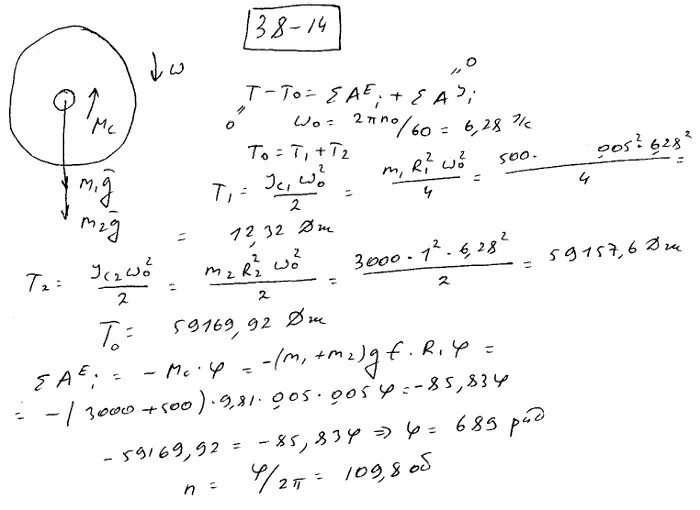 38-14
ω
Mc
m₁g̅
m₂g̅
T - T₀ = ΣAᴱᵢ + ΣAᴶᵢ
0
0
ω₀ = 2πn₀/60 = 6,28 1/c
T₀ = T₁ + T₂
T₁ = Jc₁ω₀²/2 = m₁R₁²ω₀²/4 = 500·0,05²·6,28²/4 =
= 12,32 Дж
T₂ = Jc₂ω₀²/2 = m₂R₂²ω₀²/2 = 3000·1²·6,28²/2 = 59157,6 Дж
T₀ = 59169,92 Дж
ΣAᴱᵢ = -Mc·φ = -(m₁+m₂)g f·R₁φ =
= -(3000+500)·9,81·0,05·0,05φ = -85,83φ
-59169,92 = -85,83φ ⇒ φ = 689 рад
n = φ/2π = 109,8 об